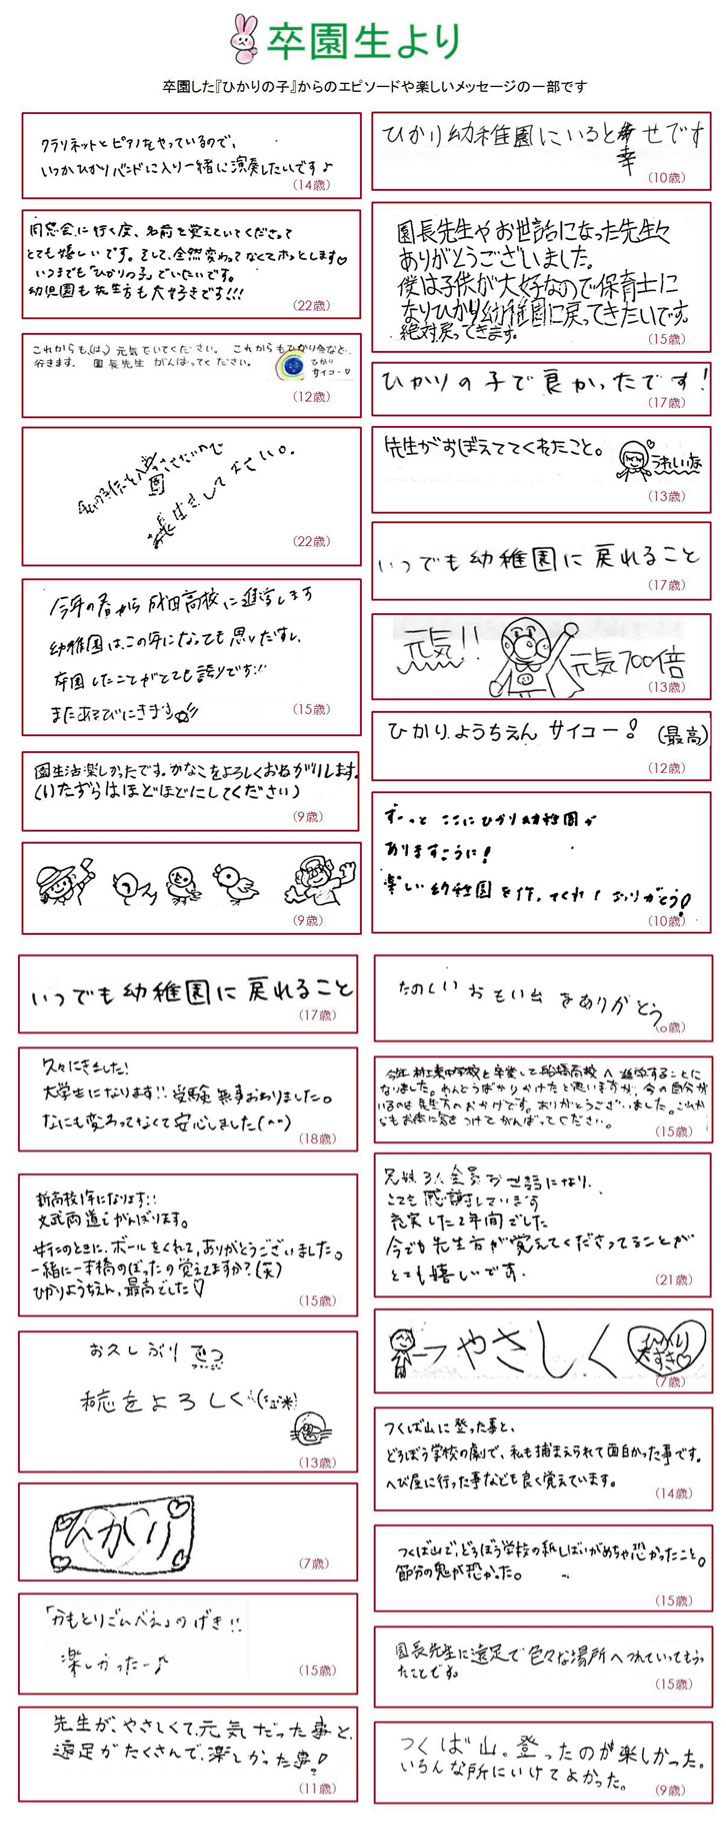 卒園生より
卒園した『ひかりの子』からのエピソードや楽しいメッセージの一部です
クラリネットとピアノをやっているので、
いつかひかりバンドに入り一緒に演奏したいです♪
(14歳)
同窓会に行く度、名前を覚えていてくださって
とても嬉しいです。そして、全然変わってなくてホッとします♡
いつまでも「ひかりっ子」でいたいです。
幼児園も先生方も大好きです!!!
(22歳)
これからも、(は、) 元気でいてください。 これからもひかり会など、
行きます。 園長先生 がんばってください。
ひかり
サイコー♡
(12歳)
園させたいので
長生きして下さい。
(22歳)
今年の春から成田高校に進学します
幼稚園は、この年になっても思いだすし、
卒園したことがとても誇りです!!
またあそびにきます
(15歳)
園生活楽しかったです。かなこをよろしくおねがいします。
(いたずらはほどほどにしてください)
(9歳)
(9歳)
ひかり幼稚園にいると幸せです
幸
(10歳)
園長先生やお世話になった先生々
ありがとうございました。
僕は子供が大好なので保育士に
なりひかり幼稚園に戻ってきたいです。
絶対戻ってきます。
(15歳)
ひかりの子で良かったです!
(17歳)
先生がおぼえててくれたこと。
うれしいな
(13歳)
いつでも幼稚園に戻れること
(17歳)
元気!!
元気700倍
(13歳)
ひかりようちえん サイコー! (最高)
(12歳)
ずーっと ここにひかり幼稚園が
ありますように!
楽しい幼稚園を作ってくれてありがとう!
(10歳)
いつでも幼稚園に戻れること
(17歳)
久々にきました!
大学生になります!! 受験無事おわりました。
なにも変わってなくて安心しました(^^)
(18歳)
新高校1年になります!!
文武両道でがんばります。
年中のときに、ボールをくれて、ありがとうございました。
一緒に一本橋のぼったの覚えてますか?(笑)
ひかりようちえん、最高でした♡
(15歳)
お久しぶりでつ
をよろしく
(13歳)
ひかり
(7歳)
「かもとりごんべえ」のげき!!
楽しかったー♪
(15歳)
先生が、やさしくて、元気だった事と、
遠足がたくさんで、楽しかった事!
(11歳)
たのしい おもい出 をありがとう
今年 村上東中学校を卒業して船橋高校へ進学することに
なりました。めんどうばかりかけたと思いますが、今の自分が
いるのは先生方のおかげです。ありがとうございました。これか
らもお体に気をつけてがんばってください。
(15歳)
兄妹3人全員お世話になり、
とても感謝しています
充実した2年間でした
今でも先生方が覚えてくださってることが
とても嬉しいです。
(21歳)
→やさしく
ひかり
大すき♡
(7歳)
つくば山に登った事と、
どろぼう学校の劇で、私も捕まえられて面白かった事です。
へび屋に行った事なども良く覚えています。
(14歳)
つくば山で、どろぼう学校の紙しばいがめちゃ恐かったこと。
節分の鬼が恐かった。
(15歳)
園長先生に遠足で色々な場所へつれていってもらっ
たことです。
(15歳)
つくば山。登ったのが楽しかった。
いろんな所にいけてよかった。
(9歳)